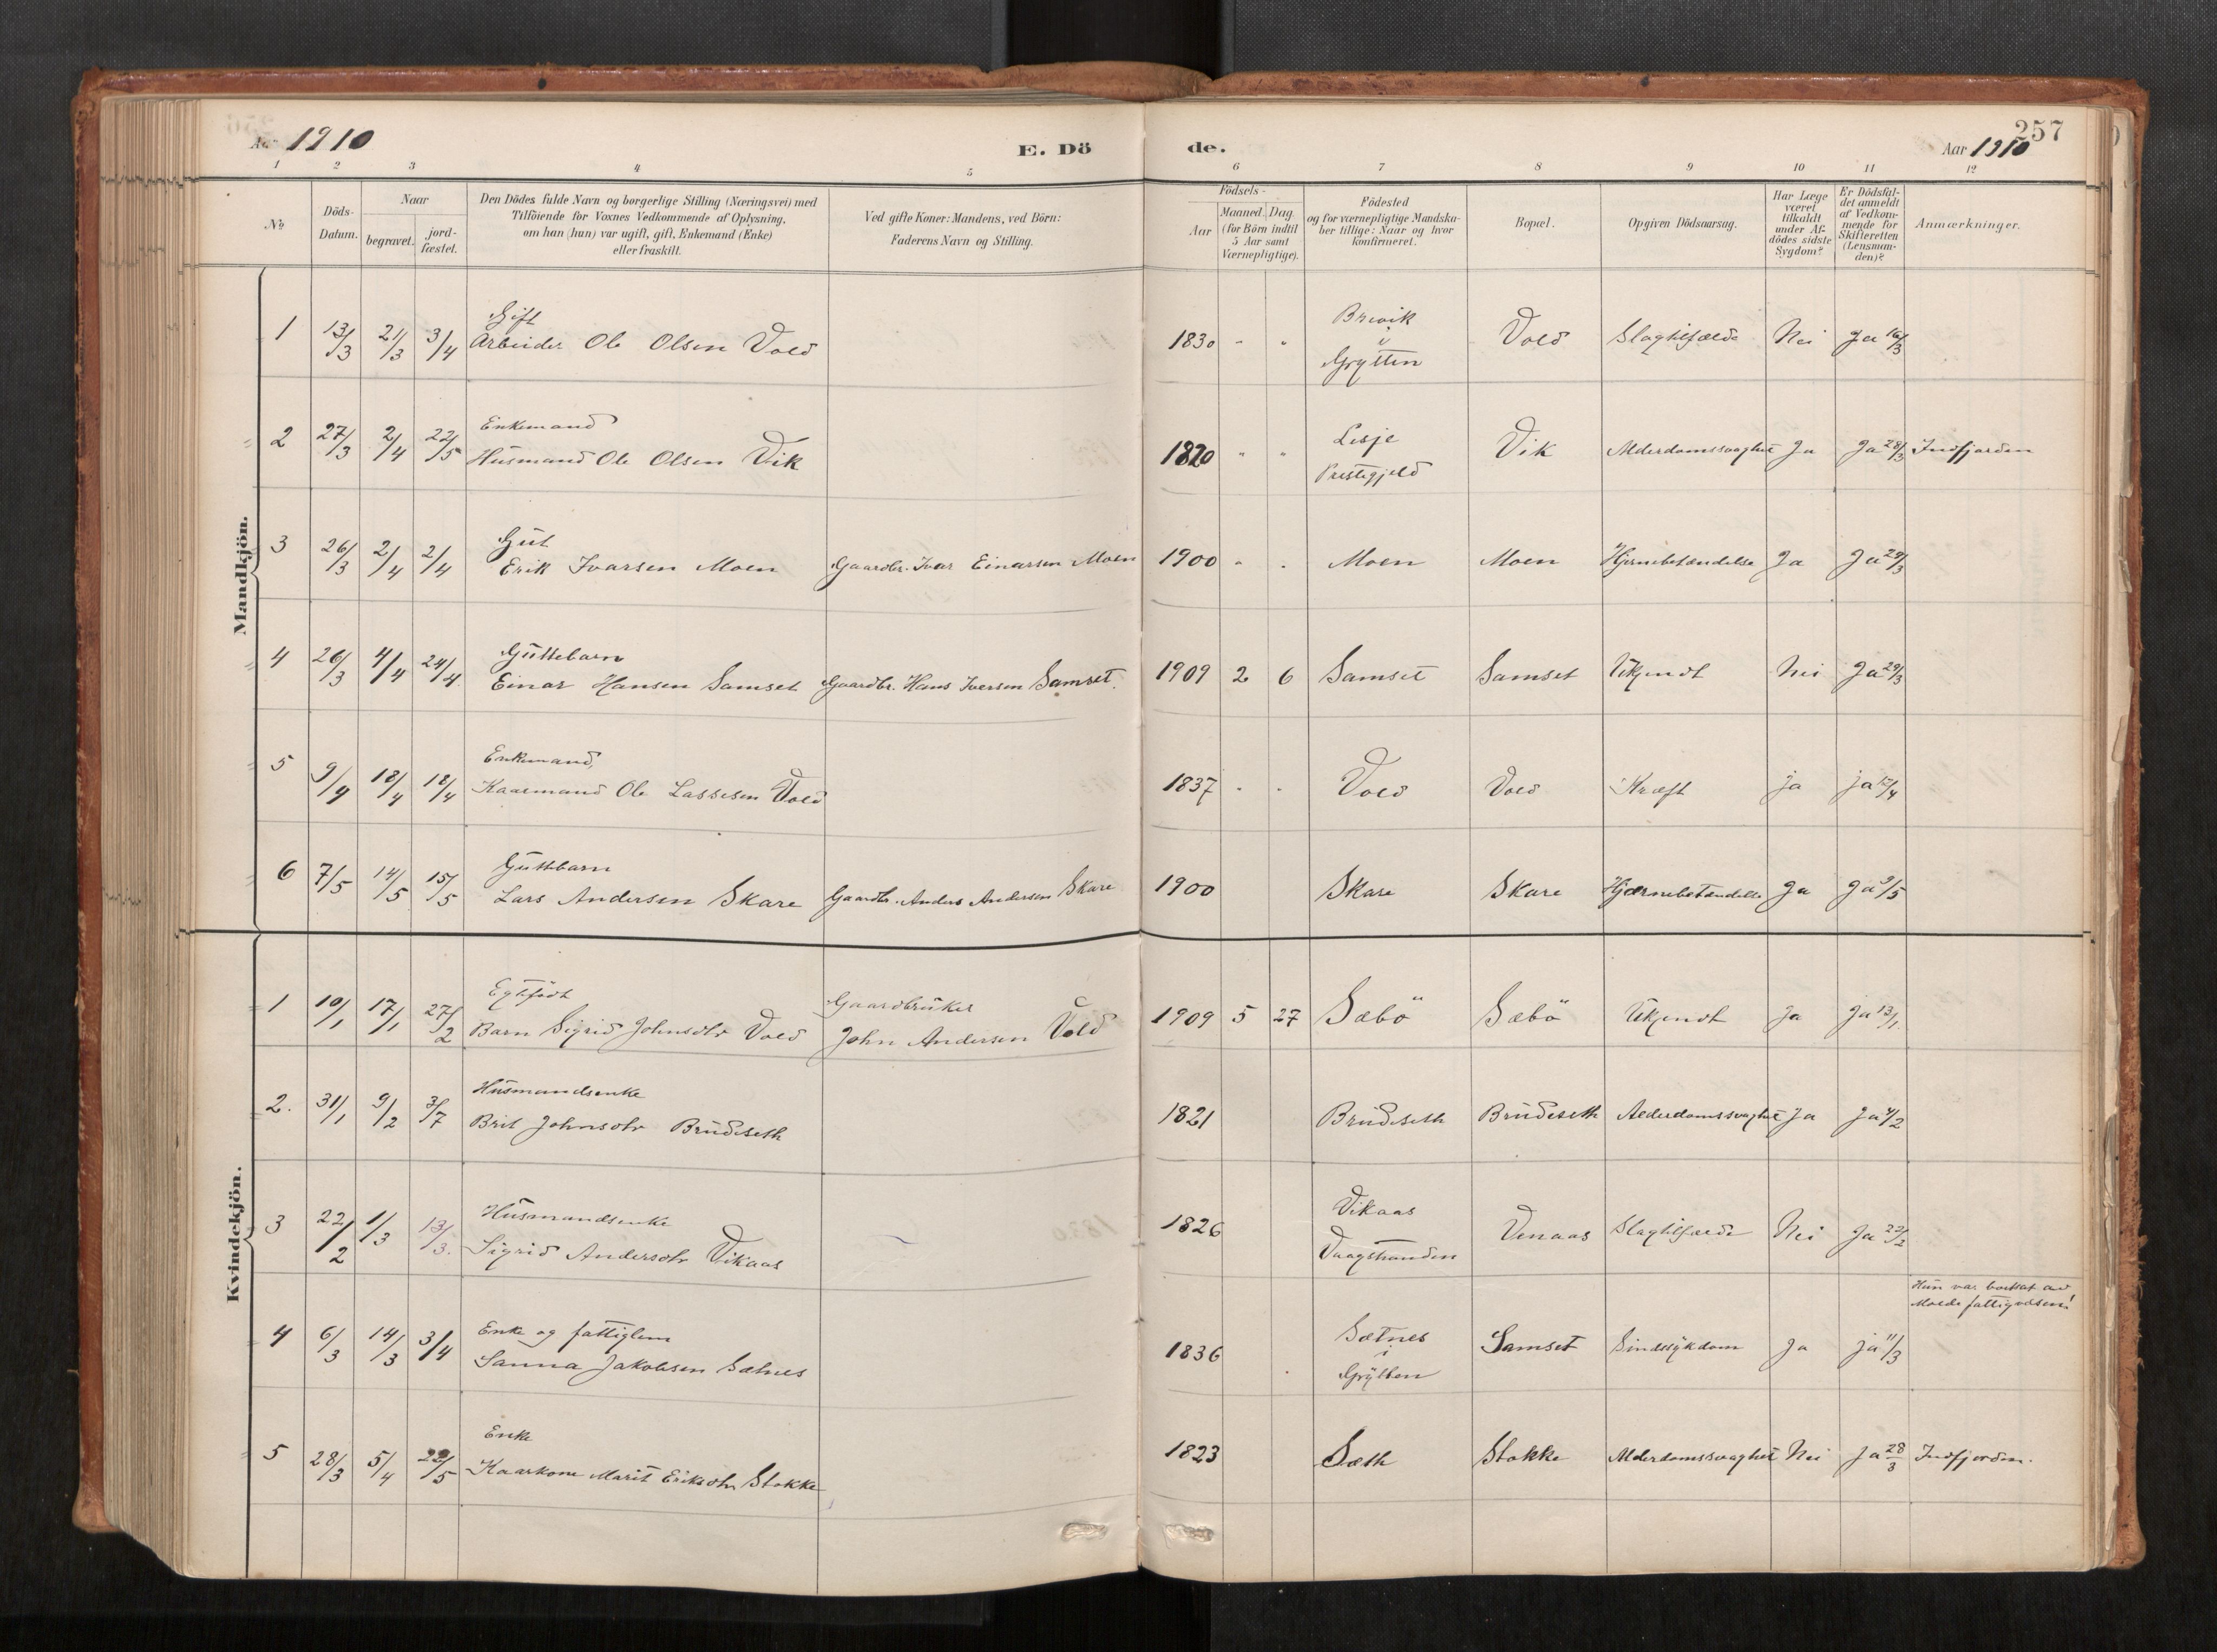 257
Aar 1910 E. Dö de. Aar 1910
1 2 3 4 5 6 7 8 9 10 11 12
Nr.
Döds-Datum.
Naar
begravet.
jord-fæstet.
Den Dödes fulde Navn og borgerlige Stilling (Næringsvei) med
Tilföiende for Voxnes Vedkommende af Oplysning,
om han (hun) var ugift, gift, Enkemand (Enke)
eller fraskilt.
Ved gifte Koner: Mandens, ved Börn:
Faderens Navn og Stilling.
Födsels-
Aar
Maaned. Dag.
(for Börn indtil
5 Aar samt
Værnepligtige).
Födested
og for værnepligtige Mandska-
ber tillige: Naar og hvor
konfirmeret.
Bopæl.
Opgiven Dödsaarsag.
Har Læge
været
tilkaldt
under Af-
dödes sidste
Sygdom?
Er Dödsfal-
det anmeldt
af Vedkom-
mende for
Skifteretten
(Lensman-
den)?
Anmærkninger.
Mandkjön.
Gift Brevik
1 13/3 21/3 3/4 Arbeider Ole Olsen Vold 1830 " " i Vold Slagtilfælde Nei Ja 16/3
Grytten
Enkemand Lesje
2 27/3 2/4 22/5 Husmand Ole Olsen Vik 1820 " " Vik Alderdomssvaghet Ja Ja 28/3 Indfjorden
Prestegjeld
Gut
3 26/3 2/4 2/4 Erik Ivarsen Moen Gaardbr. Ivar Einarsen Moen 1900 " " Moen Moen Hjernebetændelse Ja Ja 29/3
Guttebarn
4 26/3 4/4 24/4 Einar Hansen Samset Gaardbr. Hans Iversen Samset. 1909 2 6 Samset Samset Ukjendt Nei Ja 29/3
Enkemand,
5 9/4 18/4 18/4 Kaarmand Ole Lassesen Vold 1837 " " Vold Vold Kræft ja ja 12/4
Guttbarn
6 7/5 14/5 15/5 Lars Andersen Skare Gaardbr. Anders Andersen Skare 1900 Skare Skare Hjærnebetændelse Ja Ja 9/5
Kvindekjön.
Egtefödt Gaardbruker
1 10/1 17/1 27/2 Barn Sigrid Johnsdtr Vold John Andersen Vold 1909 5 27 Sæbö Sæbö Ukjendt Ja Ja 13/1
Husmandsenke
2. 31/1 9/2 3/7 Brit Johnsdtr Brudeseth 1821 Brudeseth Brudeseth Alderdomssvaghet Ja Ja 4/2
Husmandsenke Vikaas
3 22/2 1/3 13/3. Sigrid Andersdtr Vikaas 1826 Venaas Slagtilfælde Nei Ja 22/2
Vaagstranden
Hun var bortsat av
Molde fattigvæsen!
Enke og fattiglem Sætnes
4 6/3 14/3 3/4 Sanna Jakobsen Sætnes 1836 i Samset Sindssykdom Ja ja 11/3
Grytten
Enke
5 28/3 5/4 22/5 Kaarkone Marit Eriksdtr Stokke 1823 Sæth Stokke Alderdomssvaghet Nei Ja 28/3 Indfjorden.